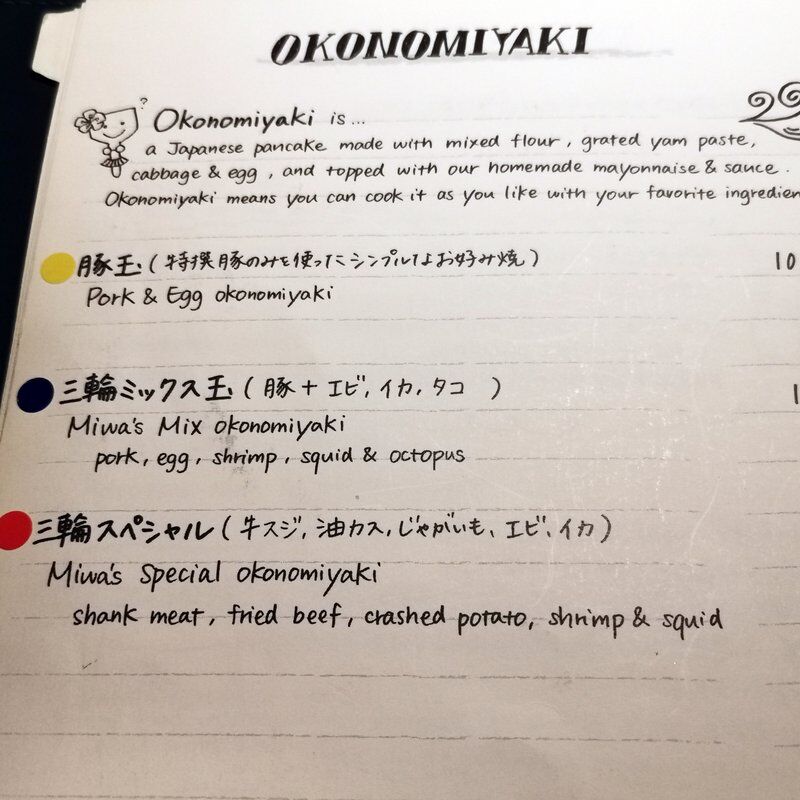 OKONOMIYAKI
?
Okonomiyaki is...
a Japanese pancake made with mixed flour, grated yam paste,
cabbage & egg, and topped with our homemade mayonnaise & sauce.
Okonomiyaki means you can cook it as you like with your favorite ingredien
豚玉(特撰豚のみを使ったシンプルなお好み焼) 10
Pork & Egg okonomiyaki
三輪ミックス玉(豚+エビ,イカ,タコ ) 1
Miwa's Mix okonomiyaki
pork, egg, shrimp, squid & octopus
三輪スペシャル(牛スジ,油カス,じゃがいも、エビ、イカ)
Miwa's Special okonomiyaki
shank meat, fried beef, crashed potato, shrimp & squid